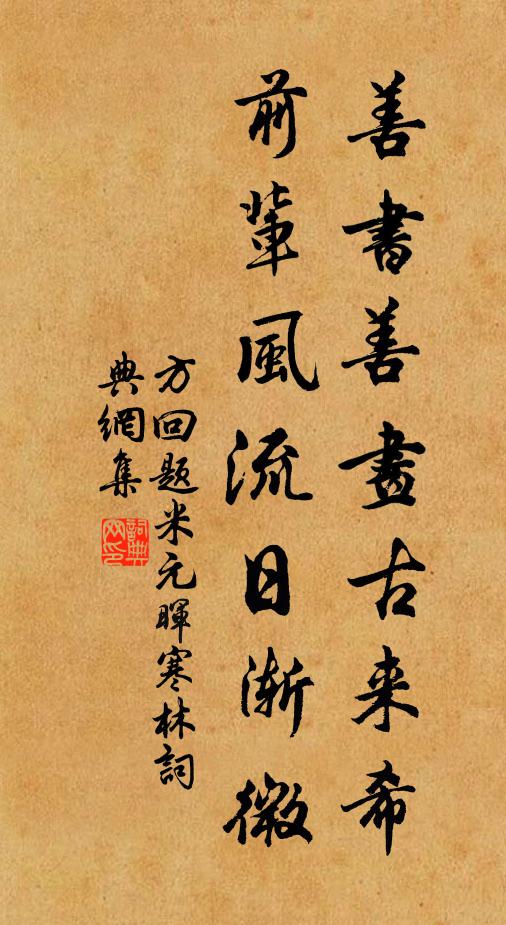 善書善畫古来希
前輩風流日漸微
方回題米元暉寒林詞
典網集
詞典網印